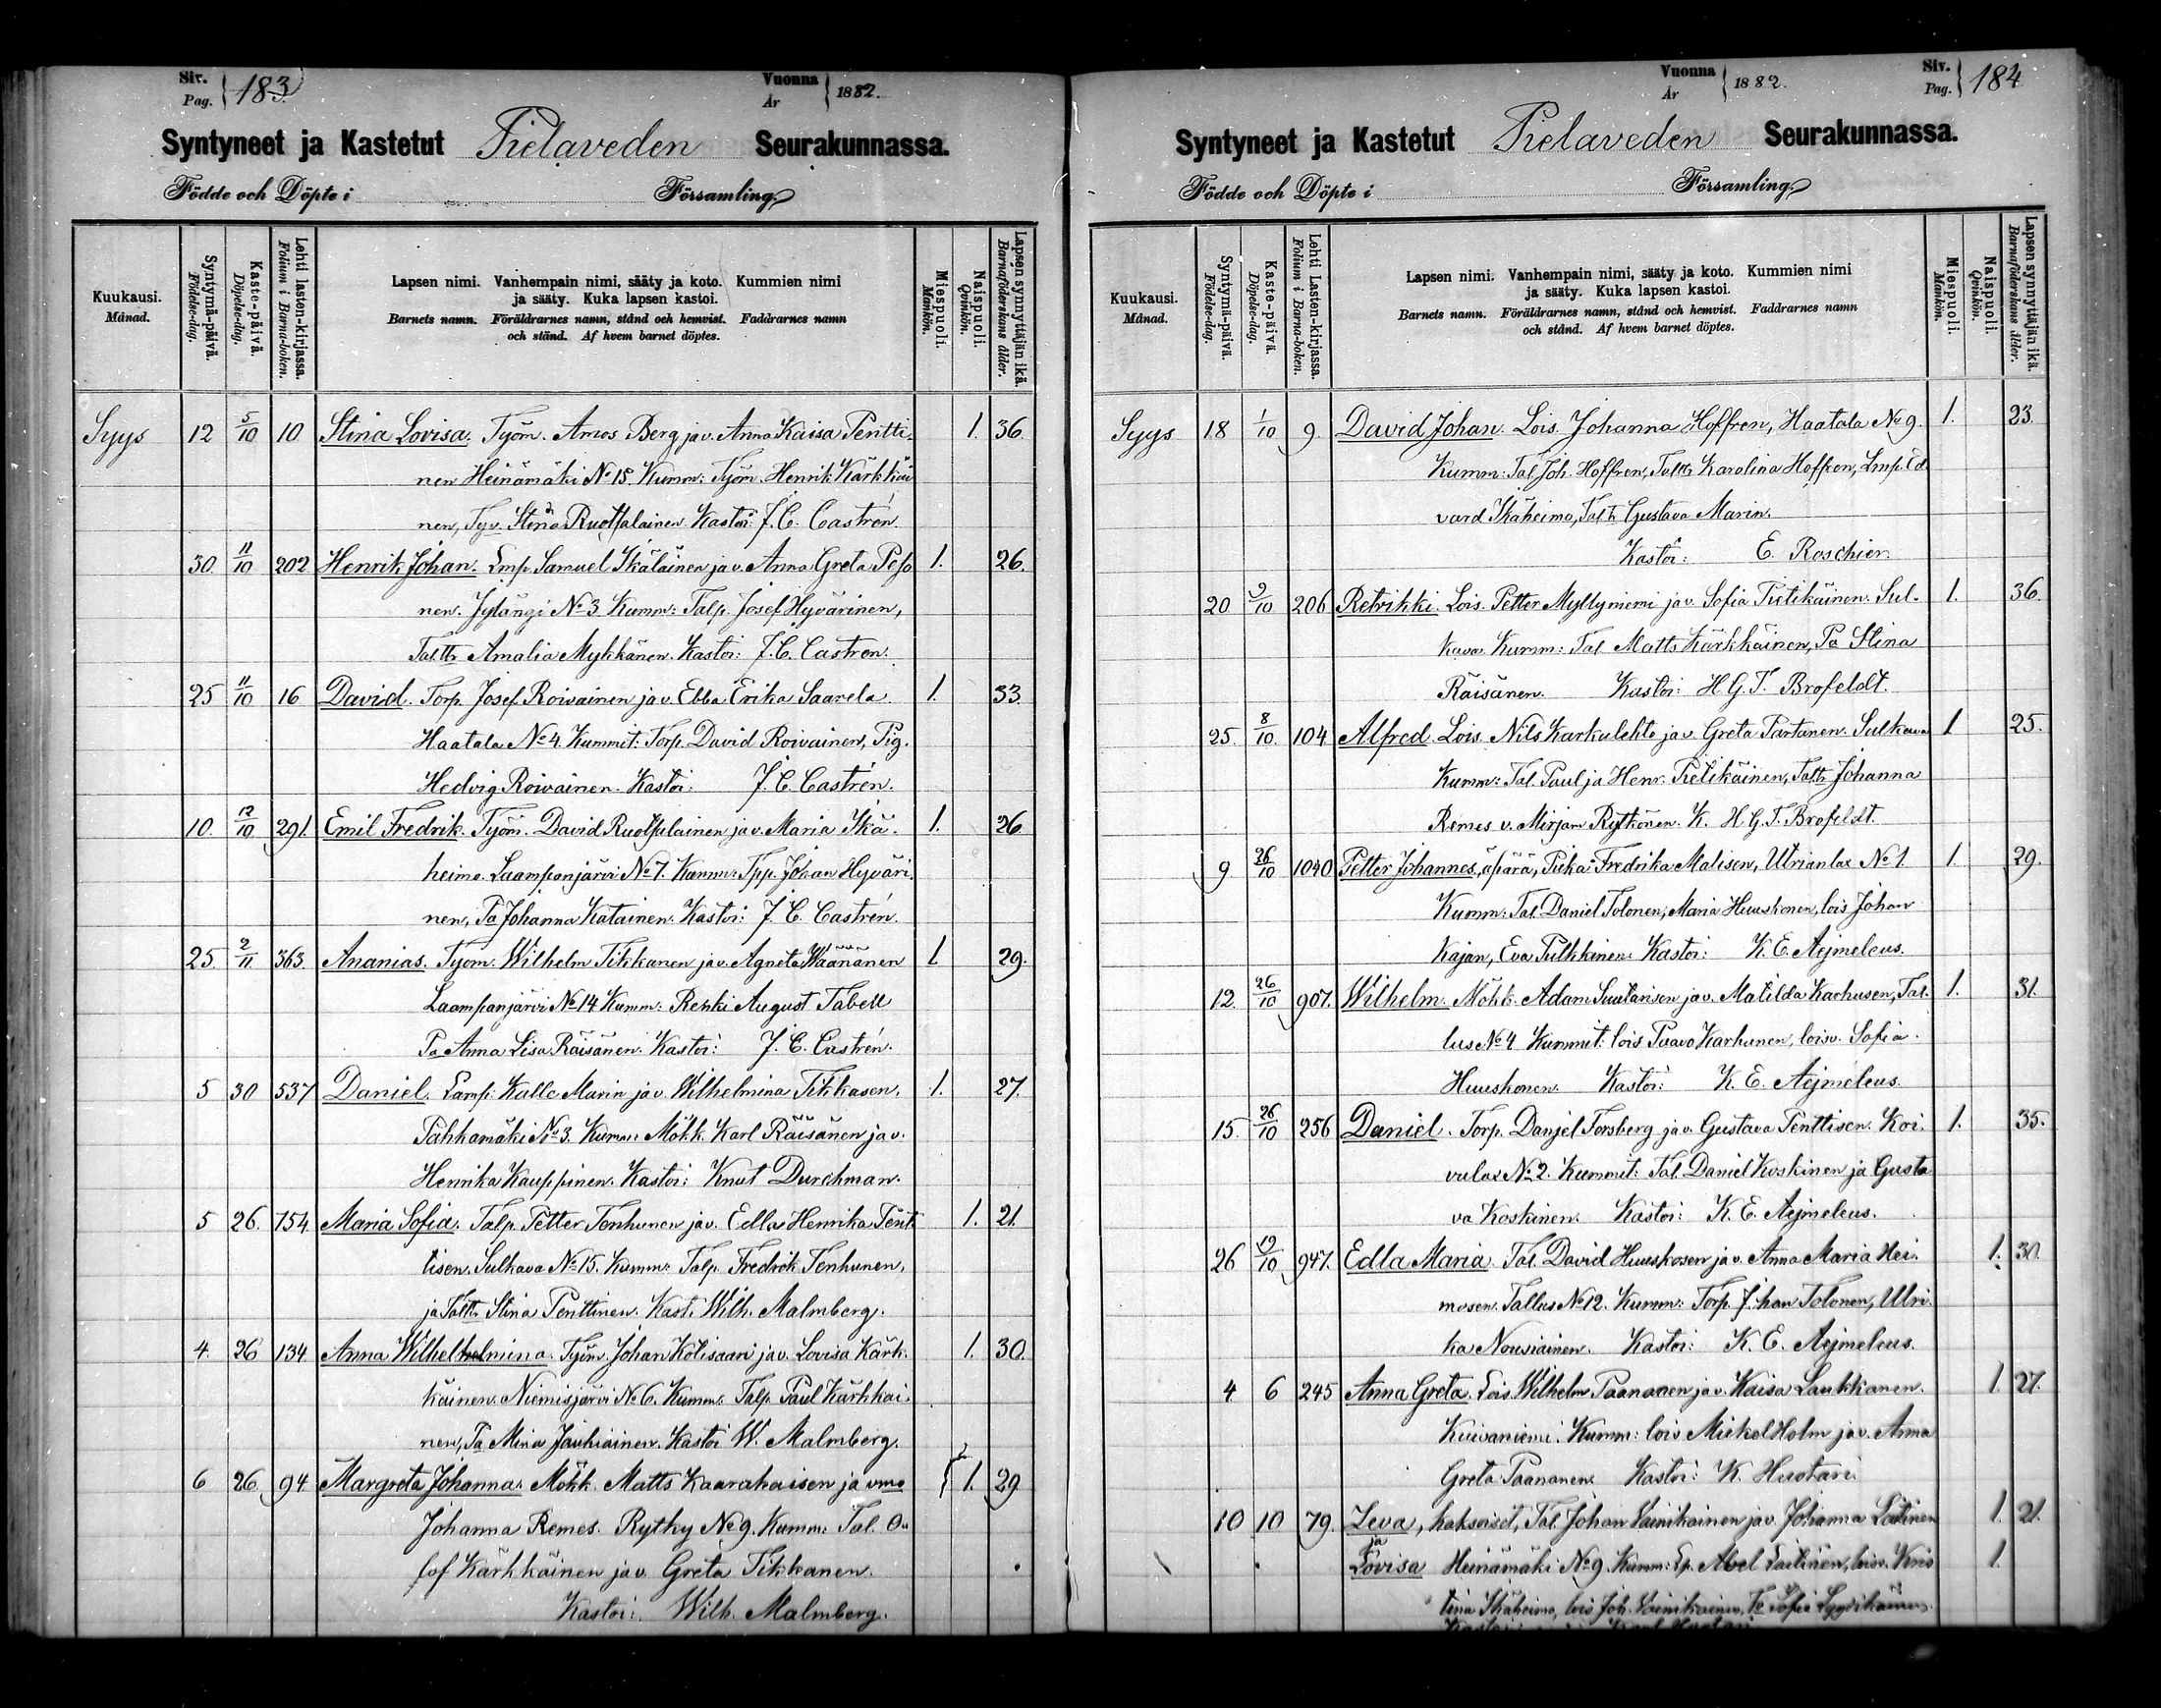 Siv.
Pag. 183.
Vuonna
År 1882.
Syntyneet ja Kastetut Pielaveden Seurakunnassa.
Födde och Döpte i Församling.
Kuukausi.
Månad.
Syntymä-päivä.
Födelse-dag.
Kaste-päivä.
Döpelse-dag.
Lehti lasten-kirjassa.
Folium i Barna-boken.
Lapsen nimi. Vanhempain nimi, sääty ja koto. Kummien nimi
ja sääty. Kuka lapsen kastoi.
Barnets namn. Föräldrarnes namn, stånd och hemvist. Faddrarnes namn
och stånd. Af hvem barnet döptes.
Miespuoli.
Mankön.
Naispuoli.
Qvinkön.
Lapsen synnyttäjän ikä.
Barnaföderskans ålder.
Syys 12 5/10 10 Stina Lovisa. Työm. Amos Berg ja v. Anna Kaisa Pentti- 1. 36.
nen Heinämäki No 15. Kumm: Työm. Henrik Kärkkäi
nen, Tyv. Stina Ruotsalainen. Kastoi J. C. Castrén.
30. 11/10 202 Henrik Johan. Lmp. Samuel Ikäläinen ja v. Anna Greta Peso 1. 26.
nen. Jylängi No 3. Kumm: Talp. Josef Hyvärinen,
Tal.tr. Amalia Mykkänen. Kastoi: J. C. Castrén.
25 11/10 16 David. Torp. Josef Roivainen ja v. Ebba Erika Saarela. 1. 33.
Haatala No 4. Kummit: Torp. David Roivainen, Pig.
Hedvig Roivainen. Kastoi: J. C. Castrén.
10. 12/10 291. Emil Fredrik. Työm. David Ruotsalainen ja v. Maria Ikä- 1. 26
heimo. Laampanjärvi No 7. Kumm: Tpp. Johan Hyväri-
nen, Pa Johanna Katainen. Kastoi: J. C. Castrén.
25. 2/11 363. Ananias. Tyom. Wilhelm Tikkanen ja v. Agneta Wäänänen 1 29.
Laampanjärvi No 14 Kumm: Renki August Tabell
Pa Anna Lisa Räisänen. Kastoi: J. C. Castrén.
5 30 537 Daniel. Lamp: Kalle Marin ja v. Wilhelmina Tikkasen. 1. 27.
Pahkamäki No 3. Kumm: Mökk. Karl Räisänen ja v.
Henrika Kauppinen. Kastoi: Knut Durchman.
5 26. 754 Maria Sofia. Talp. Petter Tenhunen ja v. Edla Henrika Pent 1. 21.
tisen. Sulkava No 15. Kumm: Talp. Fredrik Tenhunen,
ja Taltt. Stina Penttinen. Kast. Wilh. Malmberg.
4. 26 134 Anna Wilhelhelmina. Työm. Johan Kotisaari ja v. Lovisa Kärk- 1. 30.
käinen. Niemisjärvi No 6. Kumm: Talp. Paul Kärkkäi-
nen, Pa Mina Jauhiainen. Kastoi W. Malmberg.
6 26 94 Margreta Johanna. Mökk. Matts Kaarakaisen ja vmo 1. 29
Johanna Remes. Rytky No 9. Kumm: Tal. O-
lof Kärkkäinen ja v. Greta Tikkanen.
Kastoi: Wilh. Malmberg.
Vuonna
År 1882.
Siv.
Pag. 184
Syntyneet ja Kastetut Pielaveden Seurakunnassa.
Födde och Döpte i Församling.
Kuukausi.
Månad.
Syntymä-päivä.
Födelse-dag.
Kaste-päivä.
Döpelse-dag.
Lehti Lasten-kirjassa.
Folium i Barna-boken.
Lapsen nimi. Vanhempain nimi, sääty ja koto. Kummien nimi
ja sääty. Kuka lapsen kastoi.
Barnets namn. Föräldrarnes namn, stånd och hemvist. Faddrarnes namn
och stånd. Af hvem barnet döptes.
Miespuoli.
Mankön.
Naispuoli.
Qvinkön.
Lapsen synnyttäjän ikä.
Barnaföderskans ålder.
Syys 18 1/10 9. David Johan. Lois. Johanna Hoffren, Haatala No 9. 1. 23.
Kumm: Tal. Joh. Hoffren, Taltr. Karolina Hoffren, Lmp. Ed-
vard Ikäheimo, Tal.tr Gustava Marin.
Kastoi: E. Roschier.
20 9/10 206 Retrikki. Lois. Petter Myllyniemi ja v. Sofia Pietikäinen. Sul- 1. 36.
kava. Kumm: Tal. Matts Kärkkäinen, Pa Stina
Räisänen. Kastoi: H. G. T. Brofeldt.
25. 8/10. 104 Alfred. Lois. Nils Karkulehto ja v. Greta Partanen. Sulkava 1 25.
Kumm: Tal. Paul ja Henr. Pietikäinen, Taltr. Johanna
Remes v. Mirjam Rytkönen. K. H. G. T. Brofeldt.
9 26/10 1040 Petter Johannes, äpärä, Piika Fredrika Malisen, Ulrianlax No 1. 1. 29.
Kumm: Tal. Daniel Tolonen, Maria Huuskonen, lois Johan
Kajan, Eva Pulkkinen. Kastoi: K. E. Aejmeleus.
12. 26/10 907. Wilhelm. Mökk. Adam Suutarisen ja v. Matilda Karhusen, Tal- 1. 31.
lus No 4 Kummit: lois Paavo Karhunen, loisv. Sofia
Huuskonen. Kastoi: K. E. Aejmeleus.
15. 26/10 256 Daniel. Torp. Daniel Forsberg ja v. Gustava Penttisen. Koi- 1. 35.
vulax No 2. Kummit: Tal. Daniel Koskinen ja Gusta
va Koskinen. Kastoi: K. E. Aejmeleus.
26 19/10 947. Edla Maria. Tal. David Huuskosen ja v. Anna Maria Hei- 1. 30.
mosen. Tallus No 12. Kumm: Torp. Johan Tolonen, Ulri-
ka Nousiainen. Kastoi: K. E. Aejmeleus.
4 6 245 Anna Greta. Lois. Wilhelm Paananen ja v. Kaisa Laukkanen. 1. 27.
Kuivaniemi. Kumm: lois Mickel Holm ja v. Anna
Greta Paananen. Kastoi: K. Huotari.
10 10 79. Leva, kaksoiset, Tal. Johan Vainikainen ja v. Johanna Laitinen 1. 21.
ja
Lovisa Heinämäki No 9. Kumm: Lp. Abel Laitinen, loisv. Kris 1.
tina Ikäheimo, lois Joh. Vainikainen, Sofia Lyytikäinen.